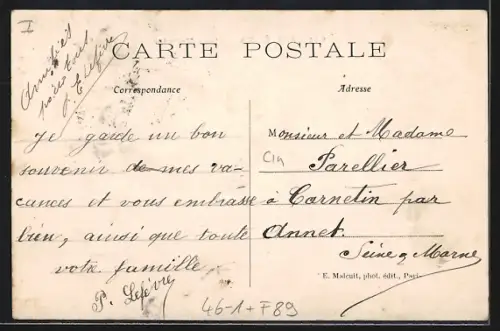 I
Amitiés
pour tous
E Lefèvre
CARTE POSTALE
Correspondance
Adresse
Je garde un bon
souvenir de mes va-
cances et vous embrasse
bien, ainsi que toute
votre famille
P. Lefèvre
Monsieur et Madame
Parellier
à Carnetin par
Annet.
Seine & Marne
E. Malcuit, phot. édit., Paris
46-1+F89